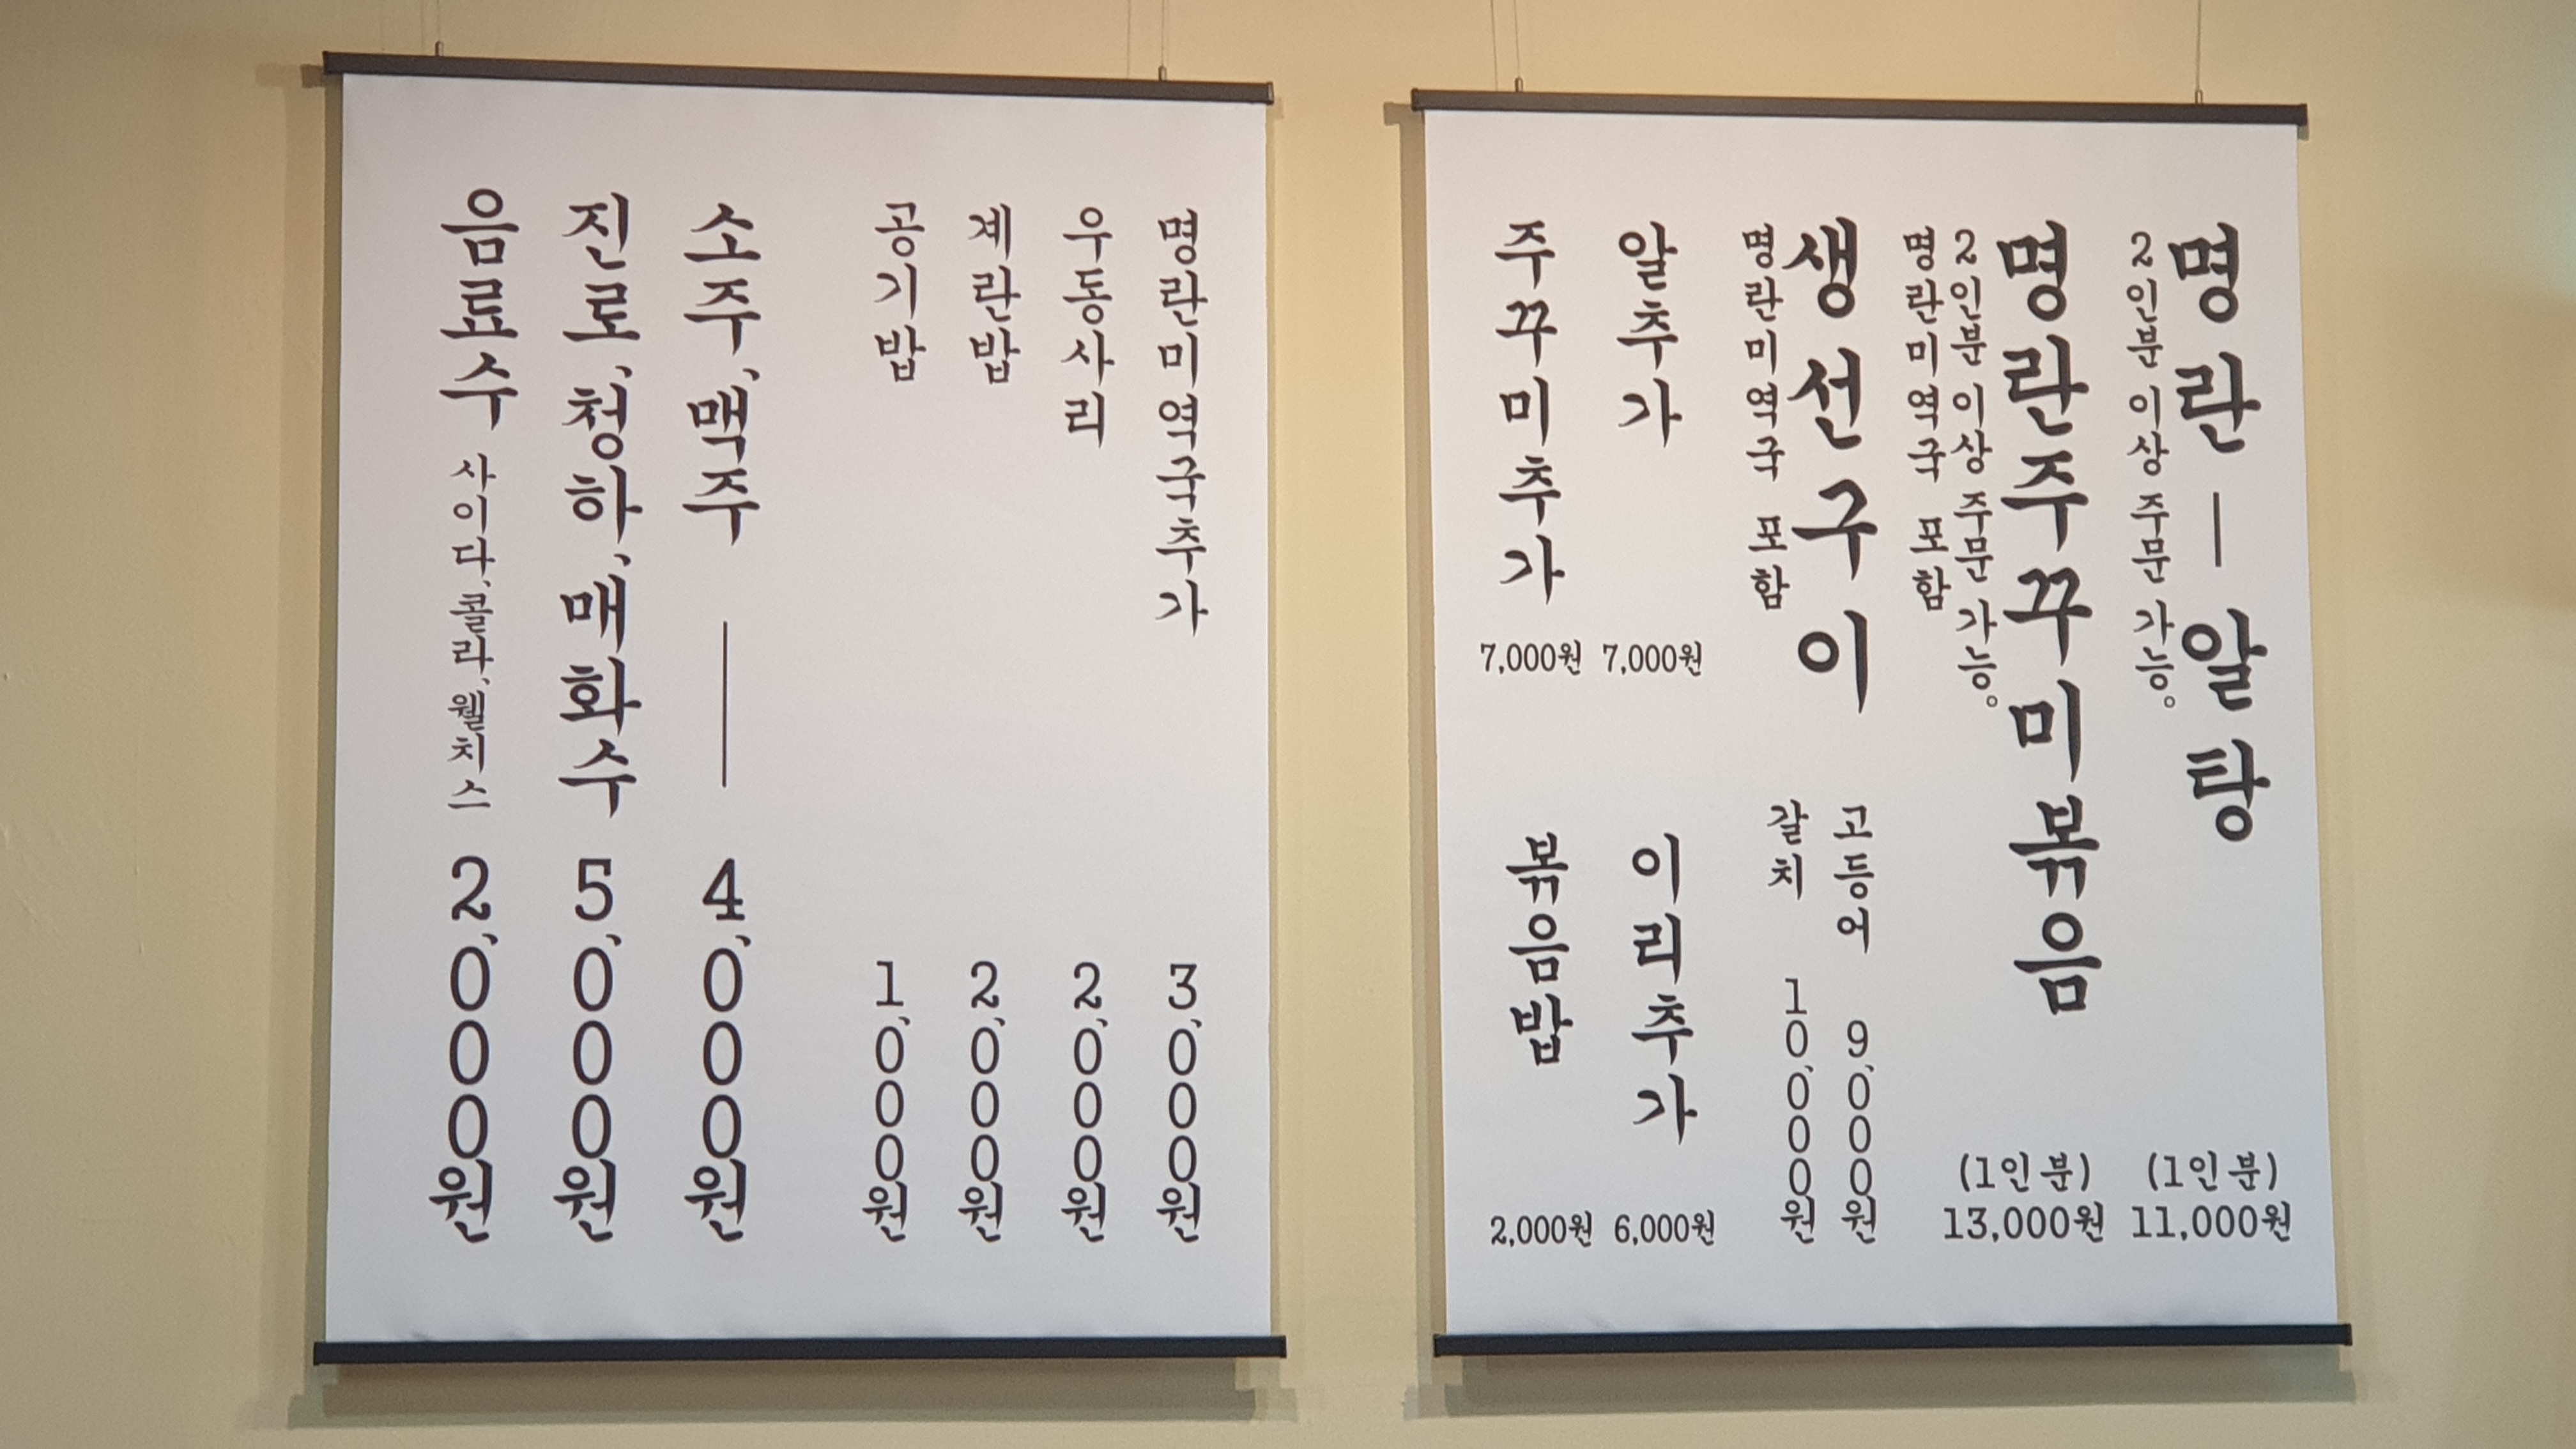 명란 - 알탕
2인분 이상 주문 가능。
(1인분)
11,000원
명란주꾸미볶음
2인분 이상 주문 가능。
명란미역국 포함
(1인분)
13,000원
생선구이
명란미역국 포함
고등어 9,000원
갈치 10,000원
알추가 7,000원
이리추가 6,000원
주꾸미추가 7,000원
볶음밥 2,000원
명란미역국추가 3,000원
우동사리 2,000원
계란밥 2,000원
공기밥 1,000원
소주,맥주 — 4,000원
진로,청하,매화수 5,000원
음료수 사이다,콜라,웰치스 2,000원